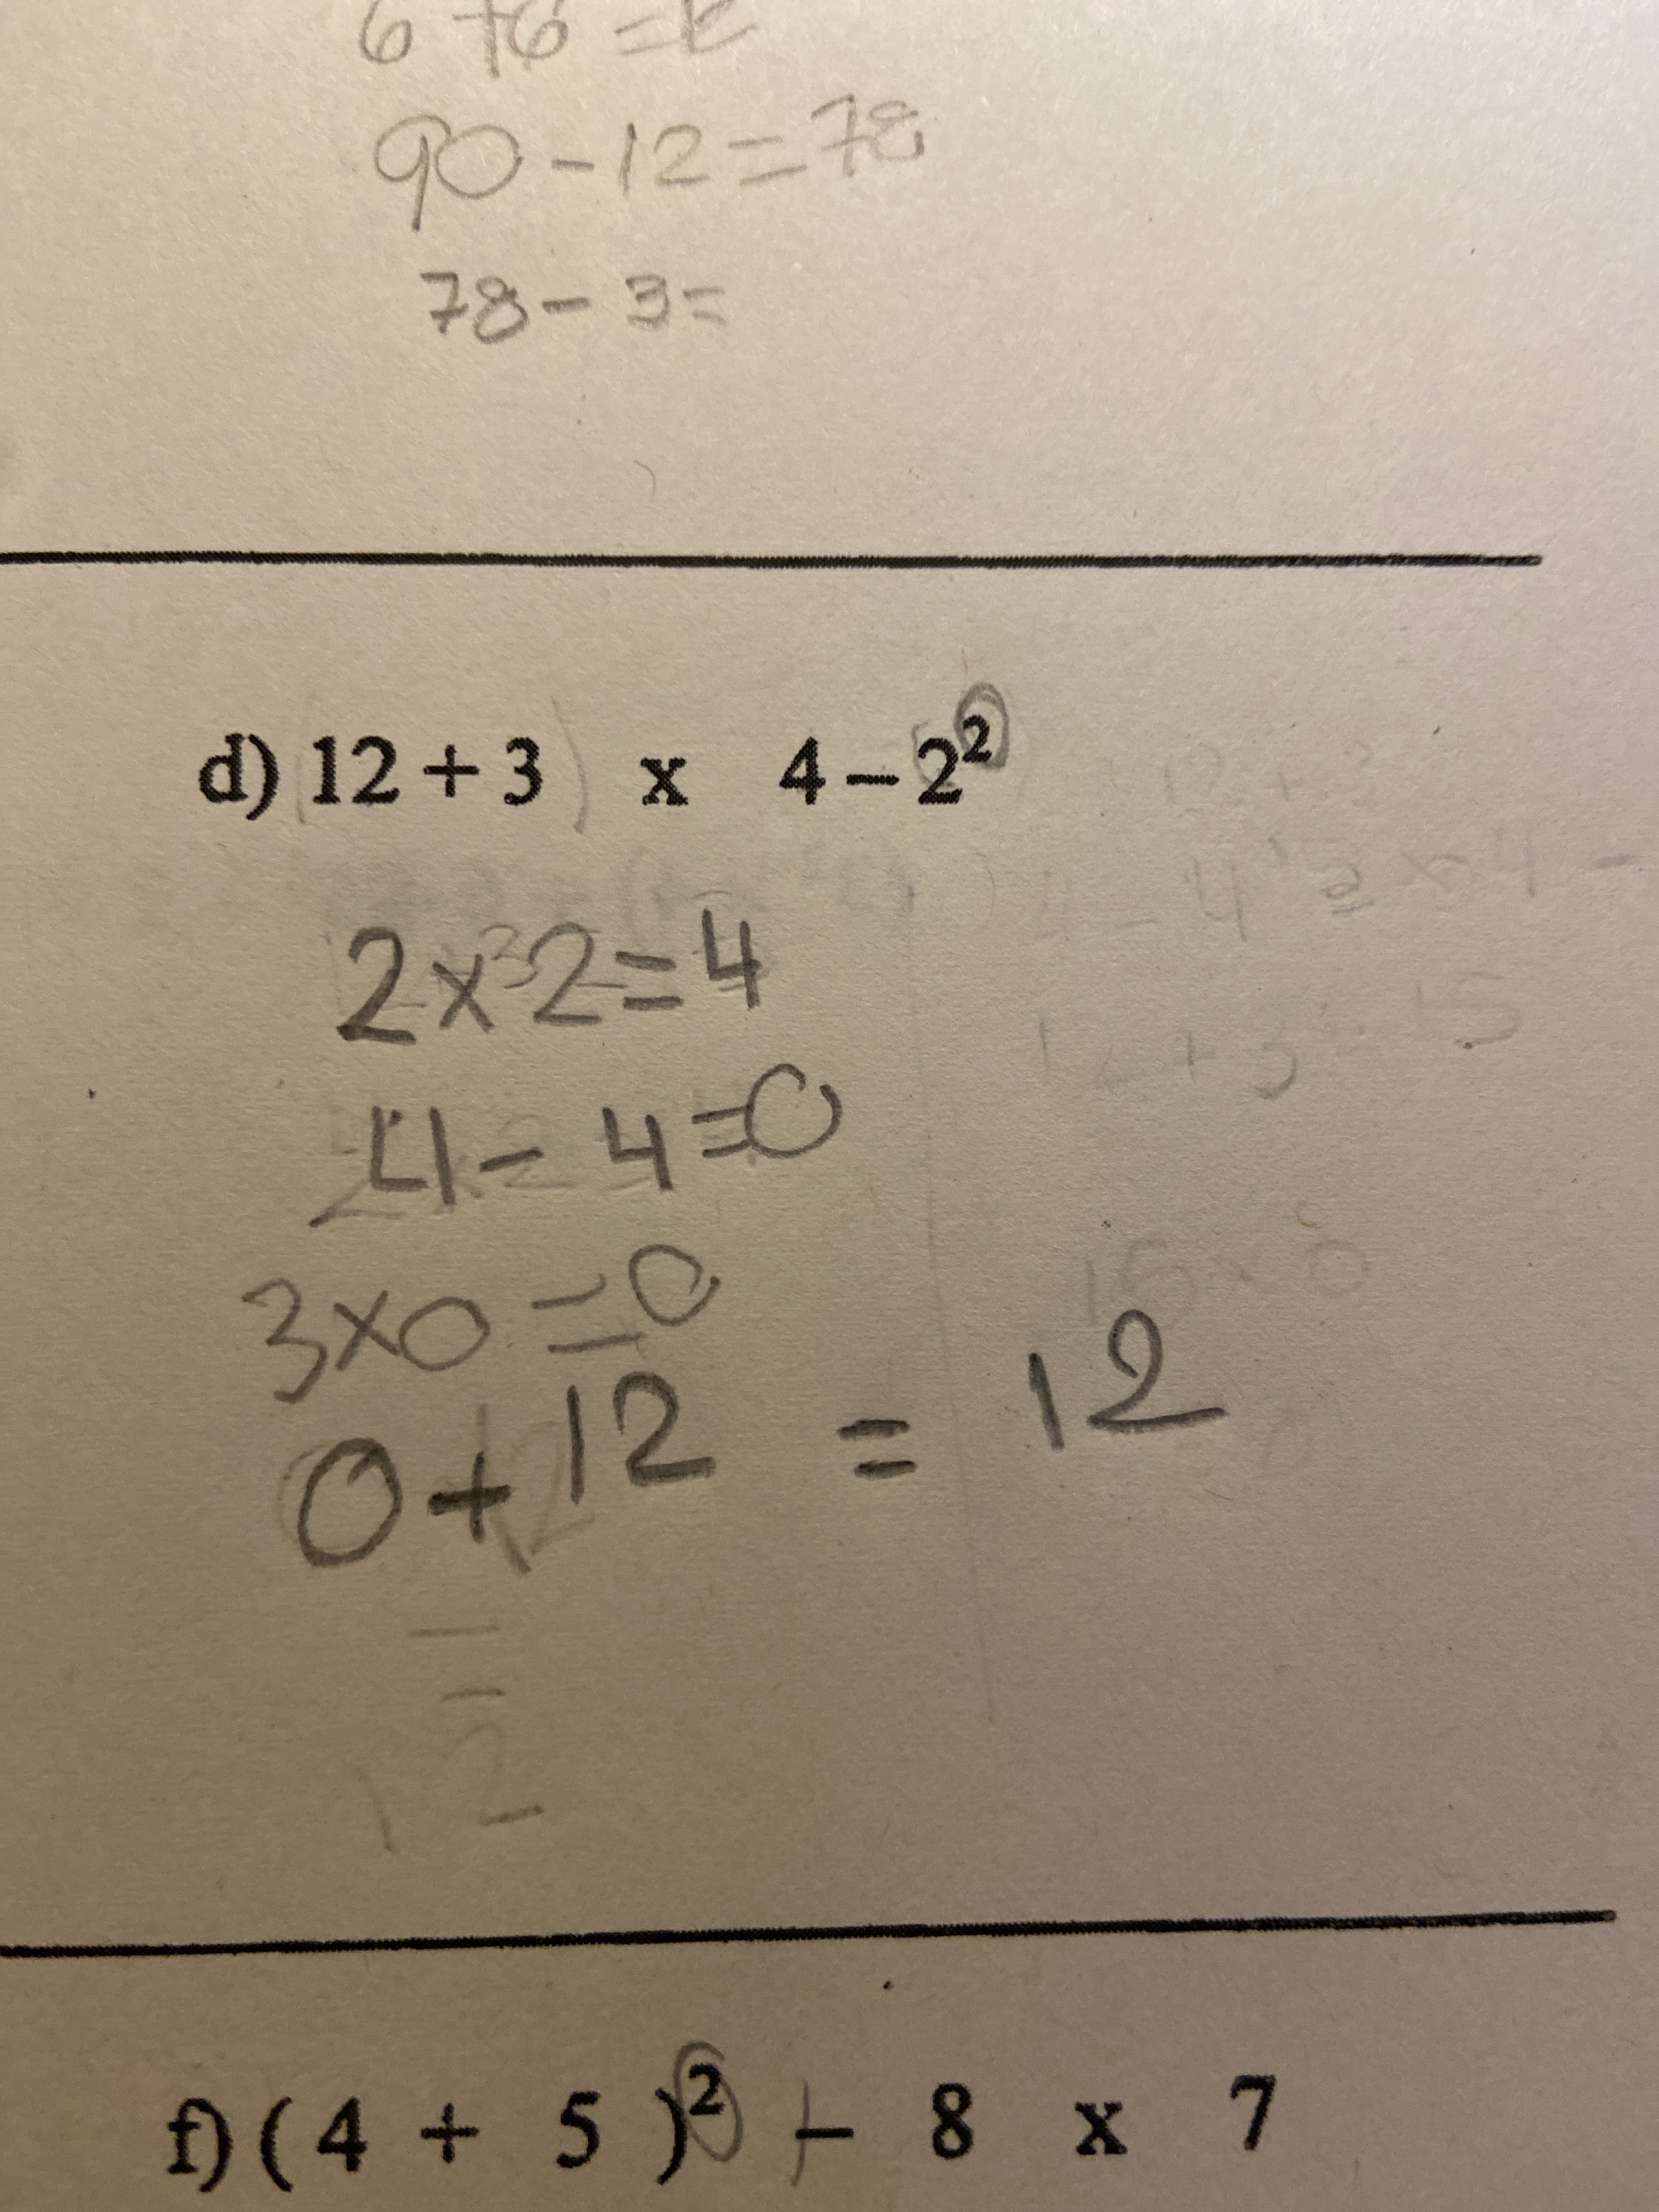 6 + 6 = 12
90 - 12 = 78
78 - 3 =
d) 12 + 3 x 4 – 2²
2 x 2 = 4
4 - 4 = 0
3 x 0 = 0
0 + 12 = 12
= 12
f) ( 4 + 5 )² – 8 x 7